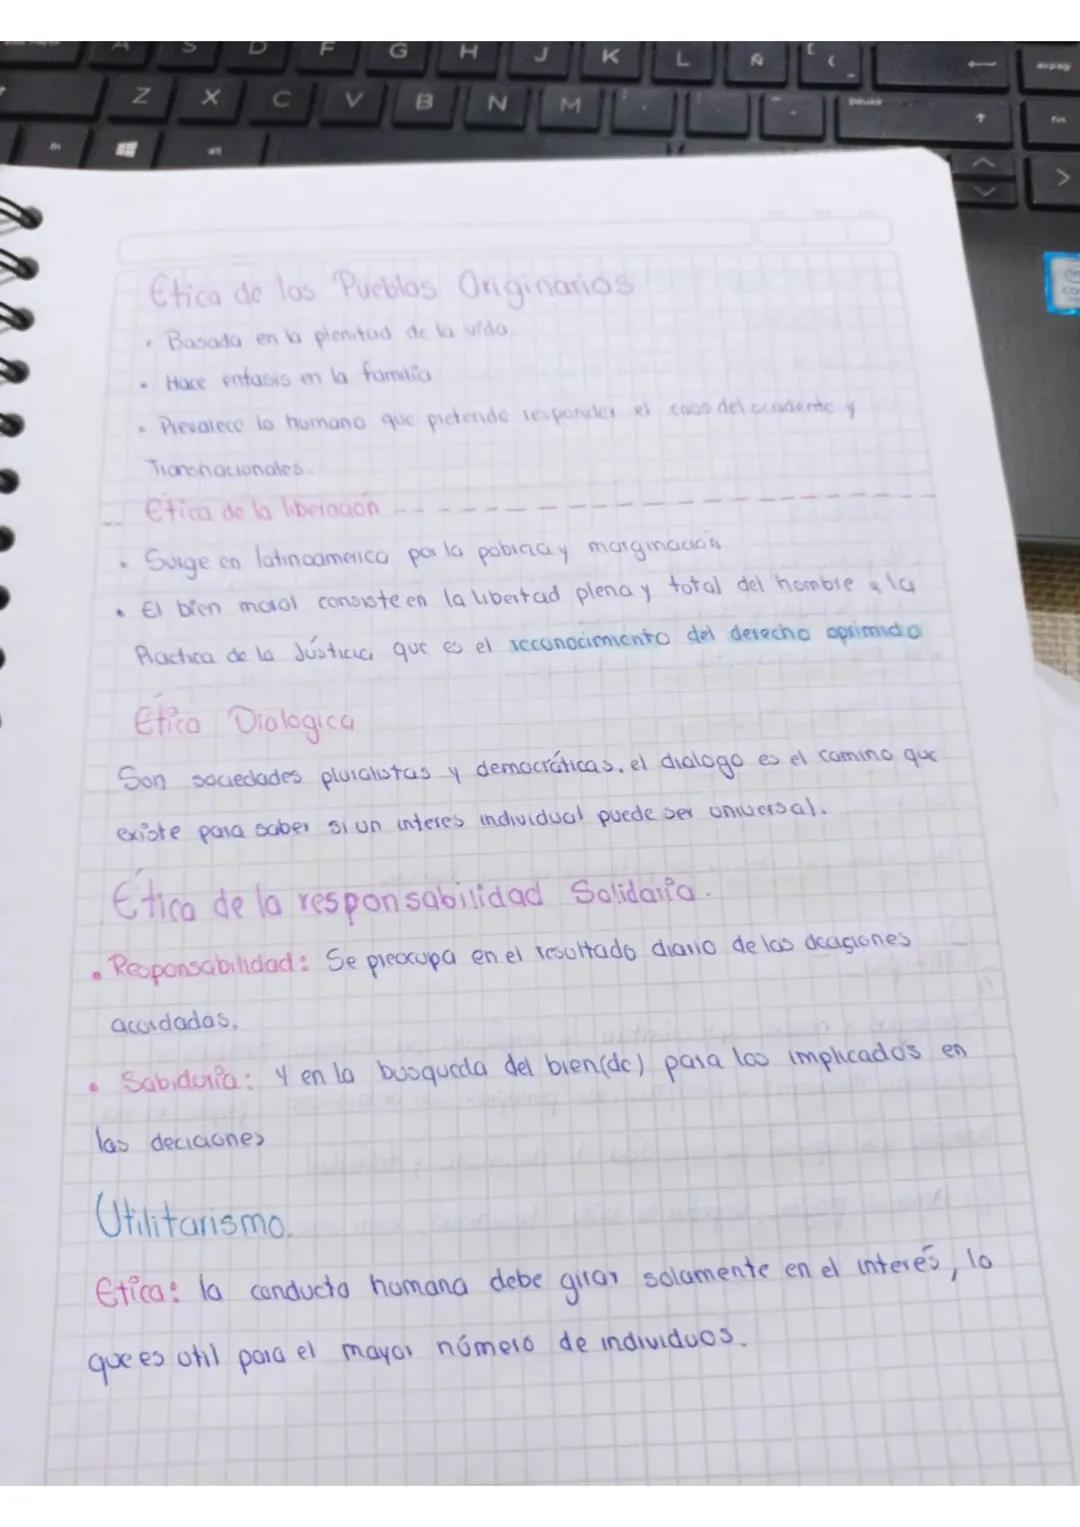 A S D F G H J K L Ñ [ {
Z X C V B N M pausa
fn alt fin
Etica de los Pueblos Originarios
• Basada en la plenitud de la vida.
• Hace enfasis en la familia
• Prevalece lo humano que pretende responder el caos del occidente y
Transnacionales.
Etica de la liberación
• Surge en latinoamerica por la pobreza y marginación
• El bien moral consiste en la libertad plena y total del hombre y la
Practica de la Jústicia que es el reconocimiento del derecho oprimido
Ética Dialogica
Son sociedades pluralistas y democráticas, el dialogo es el camino que
existe para saber si un interes individual puede ser universal.
Ética de la responsabilidad Solidaria.
• Responsabilidad: Se preocupa en el resultado diario de las
acordadas.
• Sabiduria: Y en la busqueda del bien(de) para los implicados en
las deciciones
Utilitarismo.
Etica: la conducta humana debe girar solamente en el interés, lo
que es util para el mayor número de individuos.